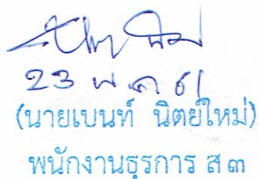 23 พ.ค 61
(นายเบนท์ นิตย์ใหม่)
พนักงานธุรการ ส ๓